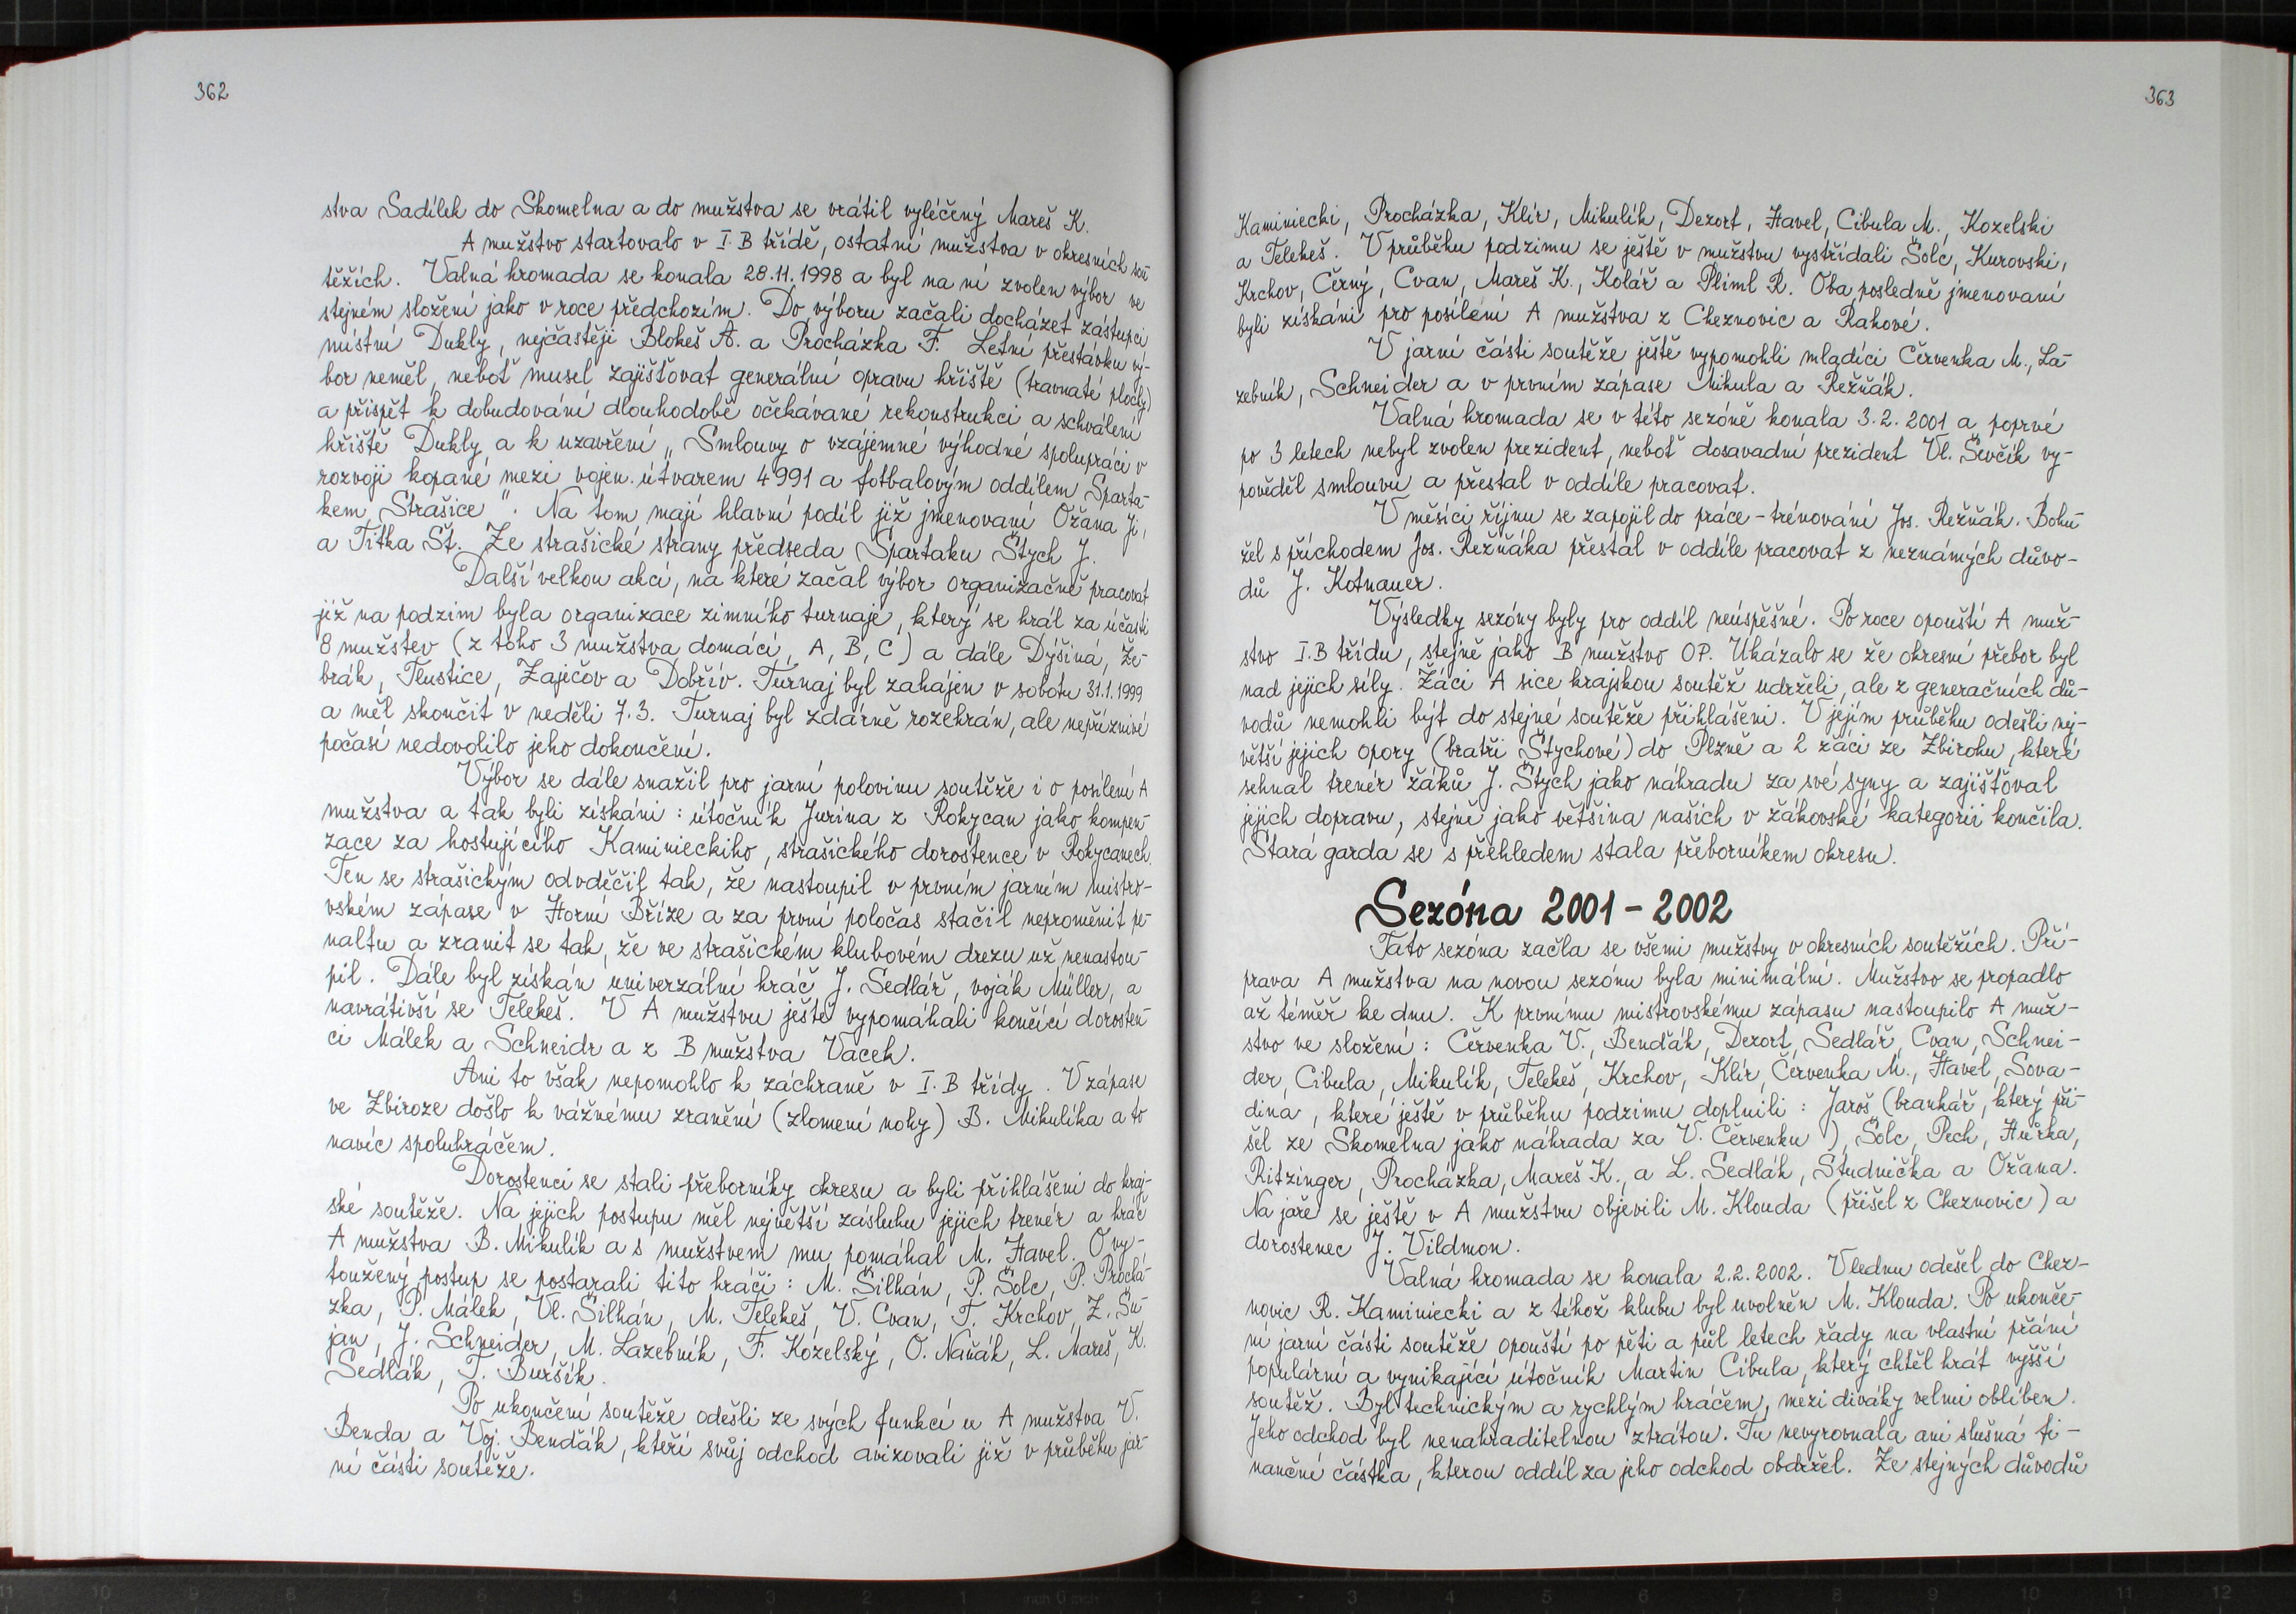 362
stva Sadílek do Skomelna a do mužstva se vrátil vyléčený Mareš K.
A mužstvo startovalo v I.B třídě, ostatní mužstva v okresních sou-
těžích. Valná hromada se konala 28.11.1998 a byl na ní zvolen výbor ve
stejném složení jako v roce předchozím. Do výboru začali docházet zástupci
místní Dukly, nejčastěji Blokeš A. a Procházka F. Letní přestávku vý-
bor neměl, neboť musel zajišťovat generální opravu hřiště (travnaté plochy)
a přispět k dobudování dlouhodobě očekávané rekonstrukci a schválení
hřiště Dukly a k uzavření „Smlouvy o vzájemné výhodné spolupráci v
rozvoji kopané mezi vojen. útvarem 4991 a fotbalovým oddílem Sparta-
kem Strašice". Na tom mají hlavní podíl již jmenovaní Ožana Ji,
a Titka Št. Ze strašické strany předseda Spartaku Štych J.
Další velkou akcí, na které začal výbor organizačně pracovat
již na podzim byla organizace zimního turnaje, který se hrál za účasti
8 mužstev (z toho 3 mužstva domácí, A, B, C) a dále Dýšina, Že-
brák, Tlustice, Zaječov a Dobřív. Turnaj byl zahájen v sobotu 31.1.1999
a měl skončit v neděli 7.3. Turnaj byl zdárně rozehrán, ale nepříznivé
počasí nedovolilo jeho dokončení.
Výbor se dále snažil pro jarní polovinu soutěže i o posílení A
mužstva a tak byli získáni : útočník Jurina z Rokycan jako kompen-
zace za hostujícího Kaminieckiho, strašického dorostence v Rokycanech.
Ten se strašickým odvděčil tak, že nastoupil v prvním jarním mistro-
vském zápase v Horní Bříze a za první poločas stačil neproměnit pe-
naltu a zranit se tak, že ve strašickém klubovém drezu už nenastou-
pil. Dále byl získán univerzální hráč J. Sedlář, voják Müller, a
navrátivší se Telekeš. V A mužstvu ještě vypomáhali končící dorosten-
ci Málek a Schneidr a z B mužstva Vacek.
Ani to však nepomohlo k záchraně v I.B třídy. V zápase
ve Zbiroze došlo k vážnému zranění (zlomení nohy) B. Mikulíka a to
navíc spoluhráčem.
Dorostenci se stali přeborníky okresu a byli přihlášeni do kraj-
ské soutěže. Na jejich postupu měl největší zásluhu jejich trenér a hráč
A mužstva B. Mikulík a s mužstvem mu pomáhal M. Havel. O vy-
toužený postup se postarali tito hráči : M. Šilhán, P. Šolc, P. Prochá-
zka, P. Málek, Vl. Šilhán, M. Telekeš, V. Cvan, T. Krchov, Z. Šu-
jan, J. Schneider, M. Lazebník, F. Kozelský, O. Naňák, L. Mareš, K.
Sedlák, T. Buršík.
Po ukončení soutěže odešli ze svých funkcí u A mužstva V.
Benda a Voj. Benďák, kteří svůj odchod avizovali již v průběhu jar-
ní části soutěže.
363
Kaminiecki, Procházka, Klír, Mikulík, Dezort, Havel, Cibula M., Kozelski
a Telekeš. V průběhu podzimu se ještě v mužstvu vystřídali Šolc, Kurovski,
Krchov, Černý, Cvan, Mareš K., Kolář a Pliml R. Oba posledně jmenovaní
byli získáni pro posílení A mužstva z Cheznovic a Rakové.
V jarní části soutěže ještě vypomohli mladíci Červenka M., La-
zebník, Schneider a v prvním zápase Mikula a Režňák.
Valná hromada se v této sezóně konala 3.2.2001 a poprvé
po 3 letech nebyl zvolen prezident, neboť dosavadní prezident Vl. Ševčík vy-
pověděl smlouvu a přestal v oddíle pracovat.
V měsíci říjnu se zapojil do práce - trénování Jos. Režňák. Bohu-
žel s příchodem Jos. Režňáka přestal v oddíle pracovat z neznámých důvo-
dů J. Kotnauer.
Výsledky sezóny byly pro oddíl neúspěšné. Po roce opouští A muž-
stvo I.B třídu, stejně jako B mužstvo OP. Ukázalo se že okresní přebor byl
nad jejich síly. Žáci A sice krajskou soutěž udrželi, ale z generačních dů-
vodů nemohli být do stejné soutěže přihlášeni. V jejím průběhu odešli nej-
větší jejich opory (bratři Štychové) do Plzně a 2 žáci ze Zbirohu, které
sehnal trenér žáků J. Štych jako náhradu za své syny a zajišťoval
jejich dopravu, stejně jako většina našich v žákovské kategorii končila.
Stará garda se s přehledem stala přeborníkem okresu.
Sezóna 2001 - 2002
Tato sezóna začla se všemi mužstvy v okresních soutěžích. Pří-
prava A mužstva na novou sezónu byla minimální. Mužstvo se propadlo
až téměř ke dnu. K prvnímu mistrovskému zápasu nastoupilo A muž-
stvo ve složení : Červenka V., Benďák, Dezort, Sedlář, Cvan, Schnei-
der, Cibula, Mikulík, Telekeš, Krchov, Klír, Červenka M., Havel, Sova-
dina, které ještě v průběhu podzimu doplnili : Jaroš (brankář, který při-
šel ze Skomelna jako náhrada za V. Červenku), Šolc, Pech, Hůrka,
Ritzinger, Procházka, Mareš K., a L. Sedlák, Studnička a Ožana.
Na jaře se ještě v A mužstvu objevili M. Klouda (přišel z Cheznovic) a
dorostenec J. Vildmon.
Valná hromada se konala 2.2.2002. V lednu odešel do Chez-
novic R. Kaminiecki a z téhož klubu byl uvolněn M. Klouda. Po ukonče-
ní jarní části soutěže opouští po pěti a půl letech řady na vlastní přání
populární a vynikající útočník Martin Cibula, který chtěl hrát vyšší
soutěž. Byl technickým a rychlým hráčem, mezi diváky velmi oblíben.
Jeho odchod byl nenahraditelnou ztrátou. Tu nevyrovnala ani slušná fi-
nanční částka, kterou oddíl za jeho odchod obdržel. Ze stejných důvodů